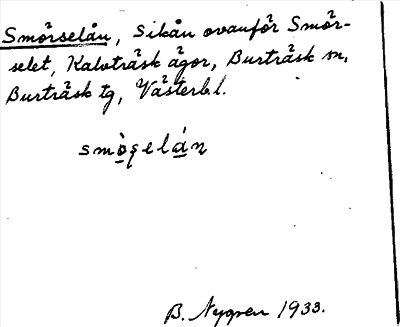 Smörselån, Sikån ovanför Smör-
selet, Kalvträsk ägor, Burträsk sn,
Burträsk tg, Västerb l.
smò̠s̩elá̠n
B. Nygren 1933.